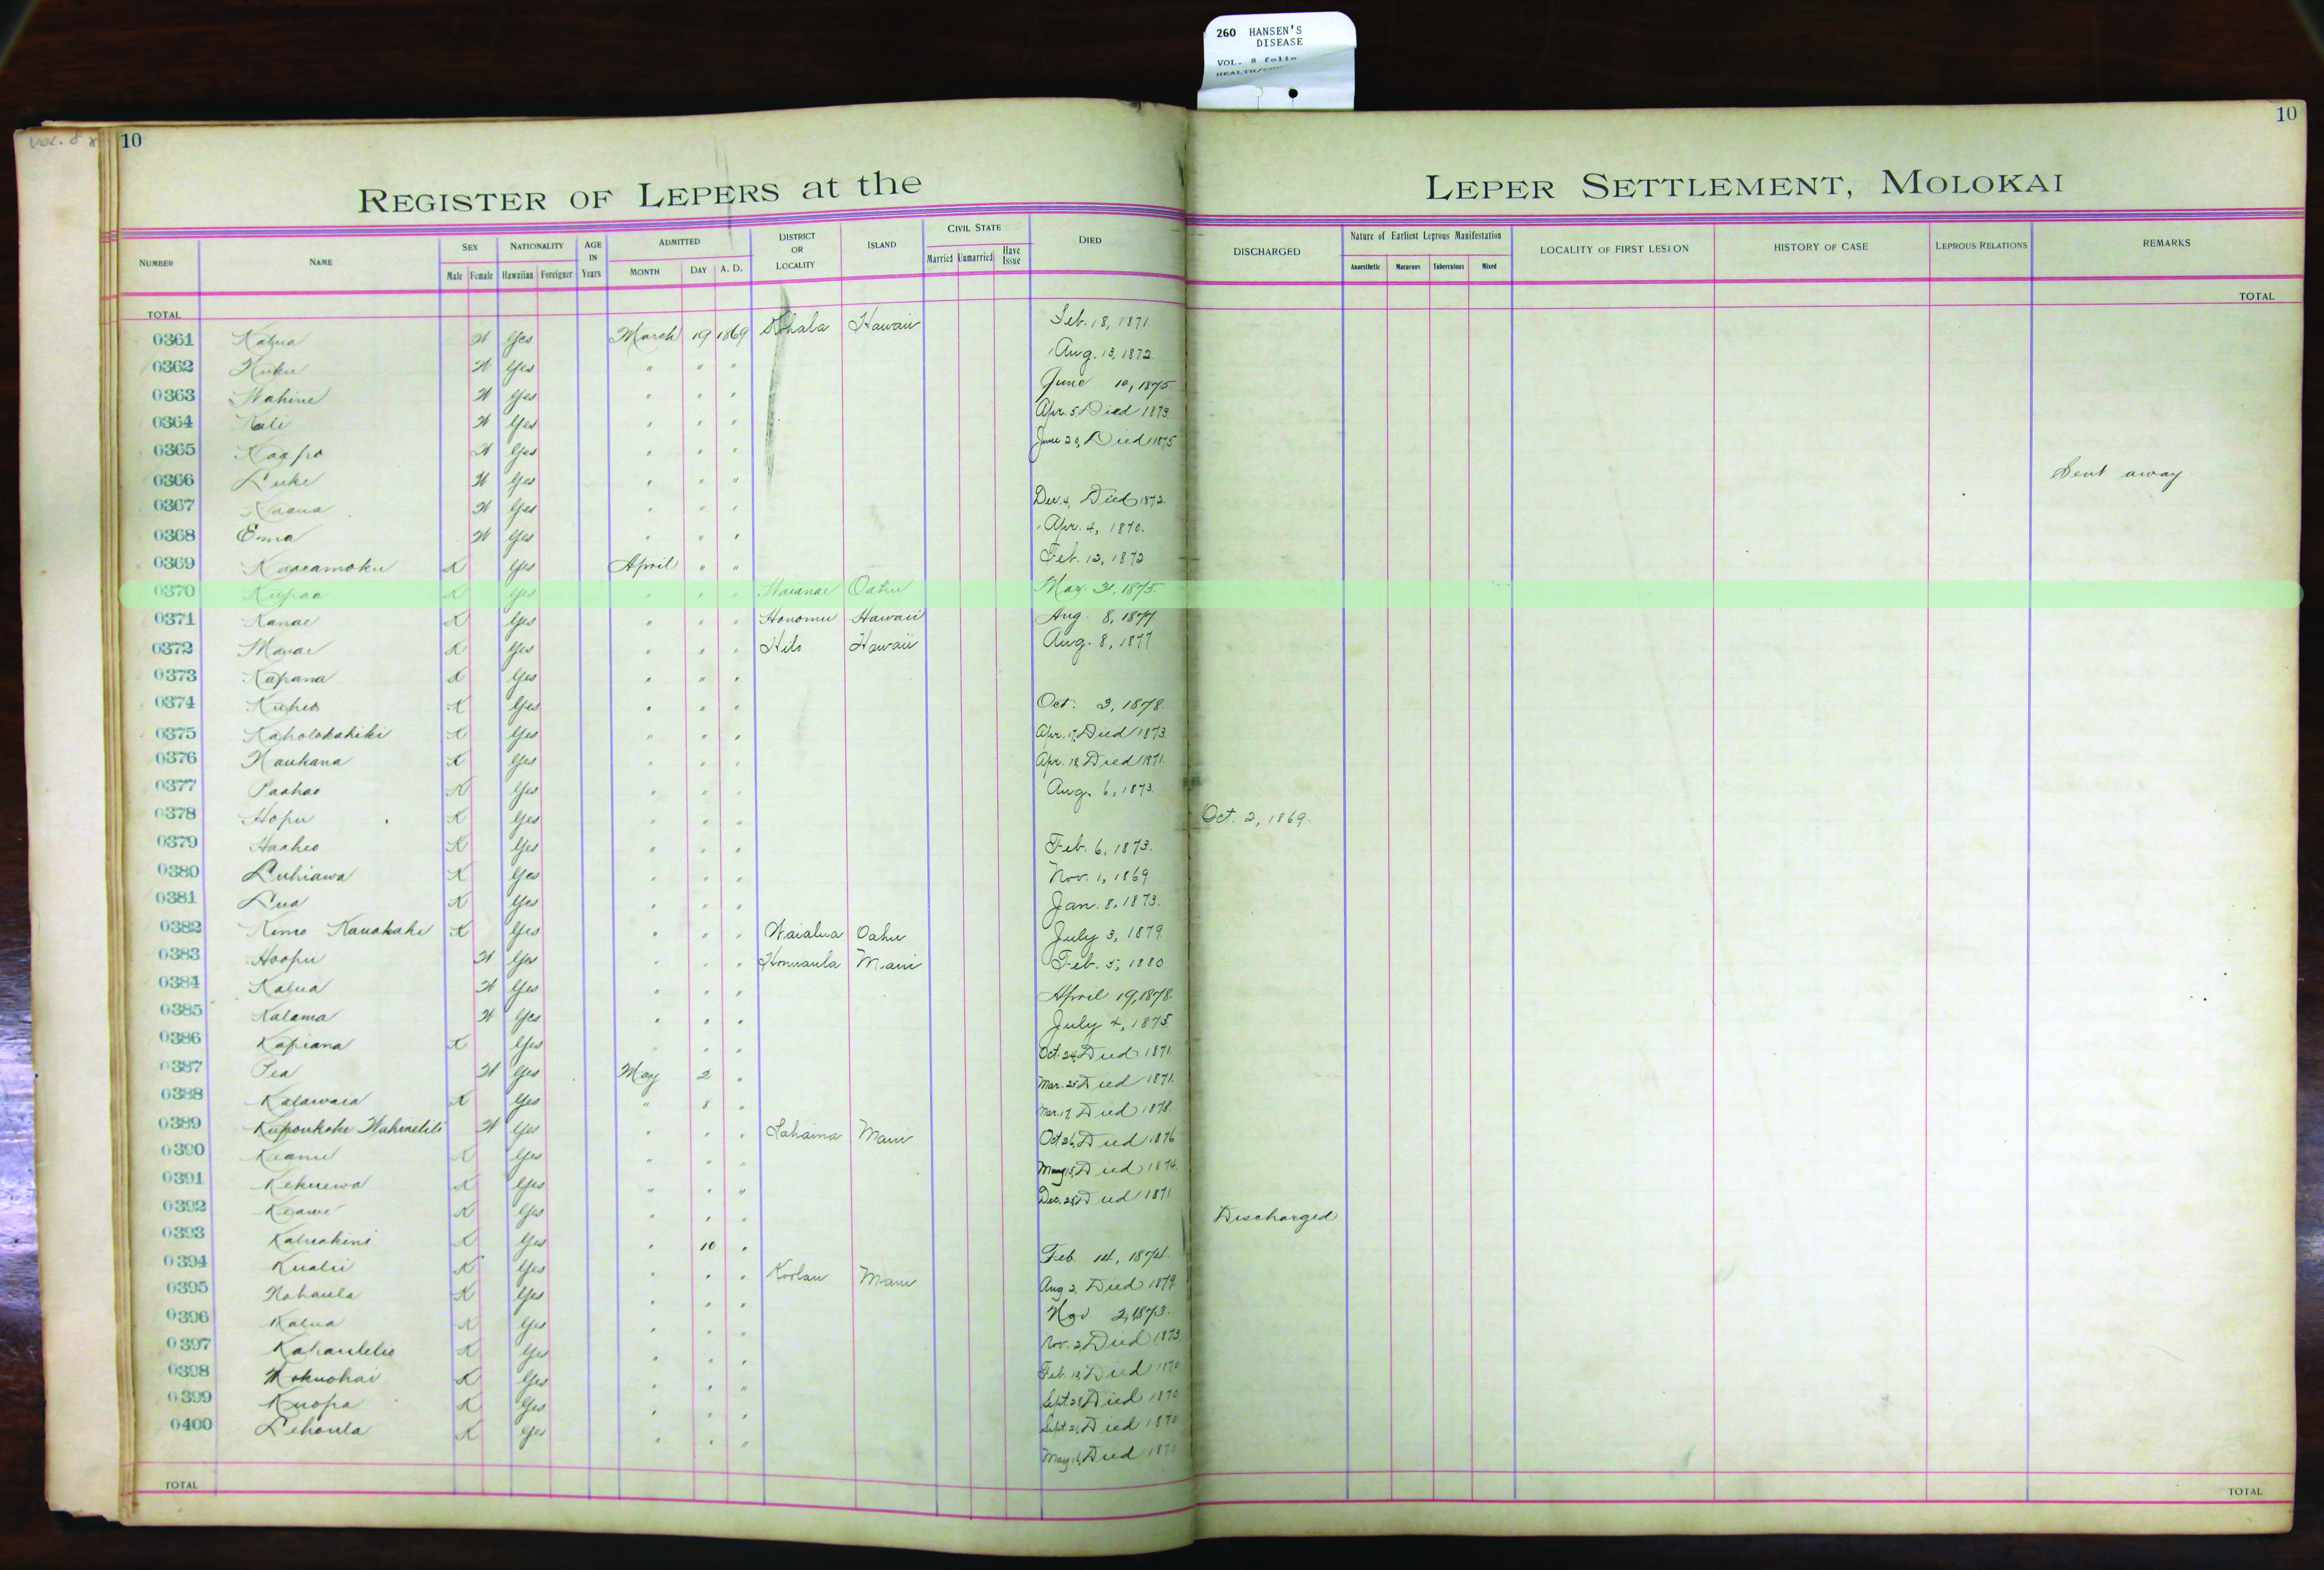 260 HANSEN'S
DISEASE
VOL. 8 folio
VOL. 8
10
10
REGISTER OF LEPERS at the LEPER SETTLEMENT, MOLOKAI
NUMBER NAME SEX NATIONALITY AGE IN Years ADMITTED DISTRICT OR LOCALITY ISLAND CIVIL STATE DIED DISCHARGED Nature of Earliest Leprous Manifestation LOCALITY OF FIRST LESION HISTORY OF CASE LEPROUS RELATIONS REMARKS
Male Female Hawaiian Foreigner MONTH DAY A. D. Married Unmarried Have Issue Anaesthetic Macurous Tuberculous Mixed
TOTAL TOTAL
0361 Kalua W Yes March 19 1869 Kohala Hawaii Feb. 18, 1871
0362 W Yes " " " Aug. 13, 1872.
0363 Wahine W Yes " " " June 10, 1875
0364 W Yes " " " Apr. 5 Died 1873.
0365 Kaapo W Yes " " " June 20, Died 1875
0366 Luke W Yes " " " Sent away
0367 W Yes " " " Dec. 4, Died 1872.
0368 Emma W Yes " " " Apr. 4, 1870.
0369 Kaaeamoku K Yes April " " Feb. 12, 1872
0370 Kupaa K Yes " " " Waianae Oahu May. 31, 1875.
0371 Kanae K Yes " " " Honomu Hawaii Aug. 8, 1877
0372 K Yes " " " Hilo Hawaii Aug. 8, 1877
0373 Kapana K Yes " " "
0374 Kuheo K Yes " " " Oct. 3, 1878.
0375 Kaholokahiki K Yes " " " Apr. 17, Died 1873.
0376 Naukana K Yes " " " Apr. 18 Died 1871.
0377 Paahao K Yes " " " Aug. 6, 1873.
0378 Hopu K Yes " " " Oct. 2, 1869.
0379 Haaheo K Yes " " " Feb. 6, 1873.
0380 Luhiawa K Yes " " " Nov. 1, 1869
0381 Lua K Yes " " " Jan. 8, 1873.
0382 Kimo Kauakahi K Yes " " " Waialua Oahu July 3, 1879.
0383 Hoopii W Yes " " " Honuaula Maui Feb. 5, 1880
0384 Kalua W Yes " " " April 19, 1878.
0385 Kalama W Yes " " " July 4, 1875
0386 Kapiana K Yes " " " Oct. 24, Died 1871.
0387 Pea W Yes May 2 " Mar. 25 Died 1871.
0388 Kalawaia K Yes " 8 " Mar. 17, Died 1878.
0389 W Yes " " " Lahaina Maui Oct 26, Died 1876
0390 Keanu K Yes " " " May 15, Died 1874.
0391 Kekuewa K Yes " " " Dec. 28, Died 1871
0392 Keawe K Yes " " " Discharged
0393 Kaluakini K Yes " 10 " Feb. 14, 1874.
0394 Kualii K Yes " " " Koolau Maui Aug 2, Died 1879.
0395 Nahaula K Yes " " " Nov 2, 1873.
0396 Kalua K Yes " " " Nov. 2, Died 1873
0397 Kahaulelio K Yes " " " Feb. 18, Died 1870
0398 Mokuohai K Yes " " " Sept. 28, Died 1870
0399 Kuopa K Yes " " " Sept. 21, Died 1870
0400 Lehoula K Yes " " " May 16, Died 1870
TOTAL TOTAL